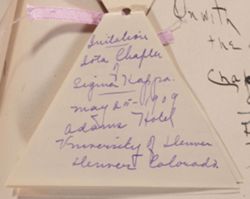 Initation
Iota Chapter
of
Sigma Kappa.
May 25 - 1909
Adams Hotel
University of Denver
Denver Colorado.
On with
the